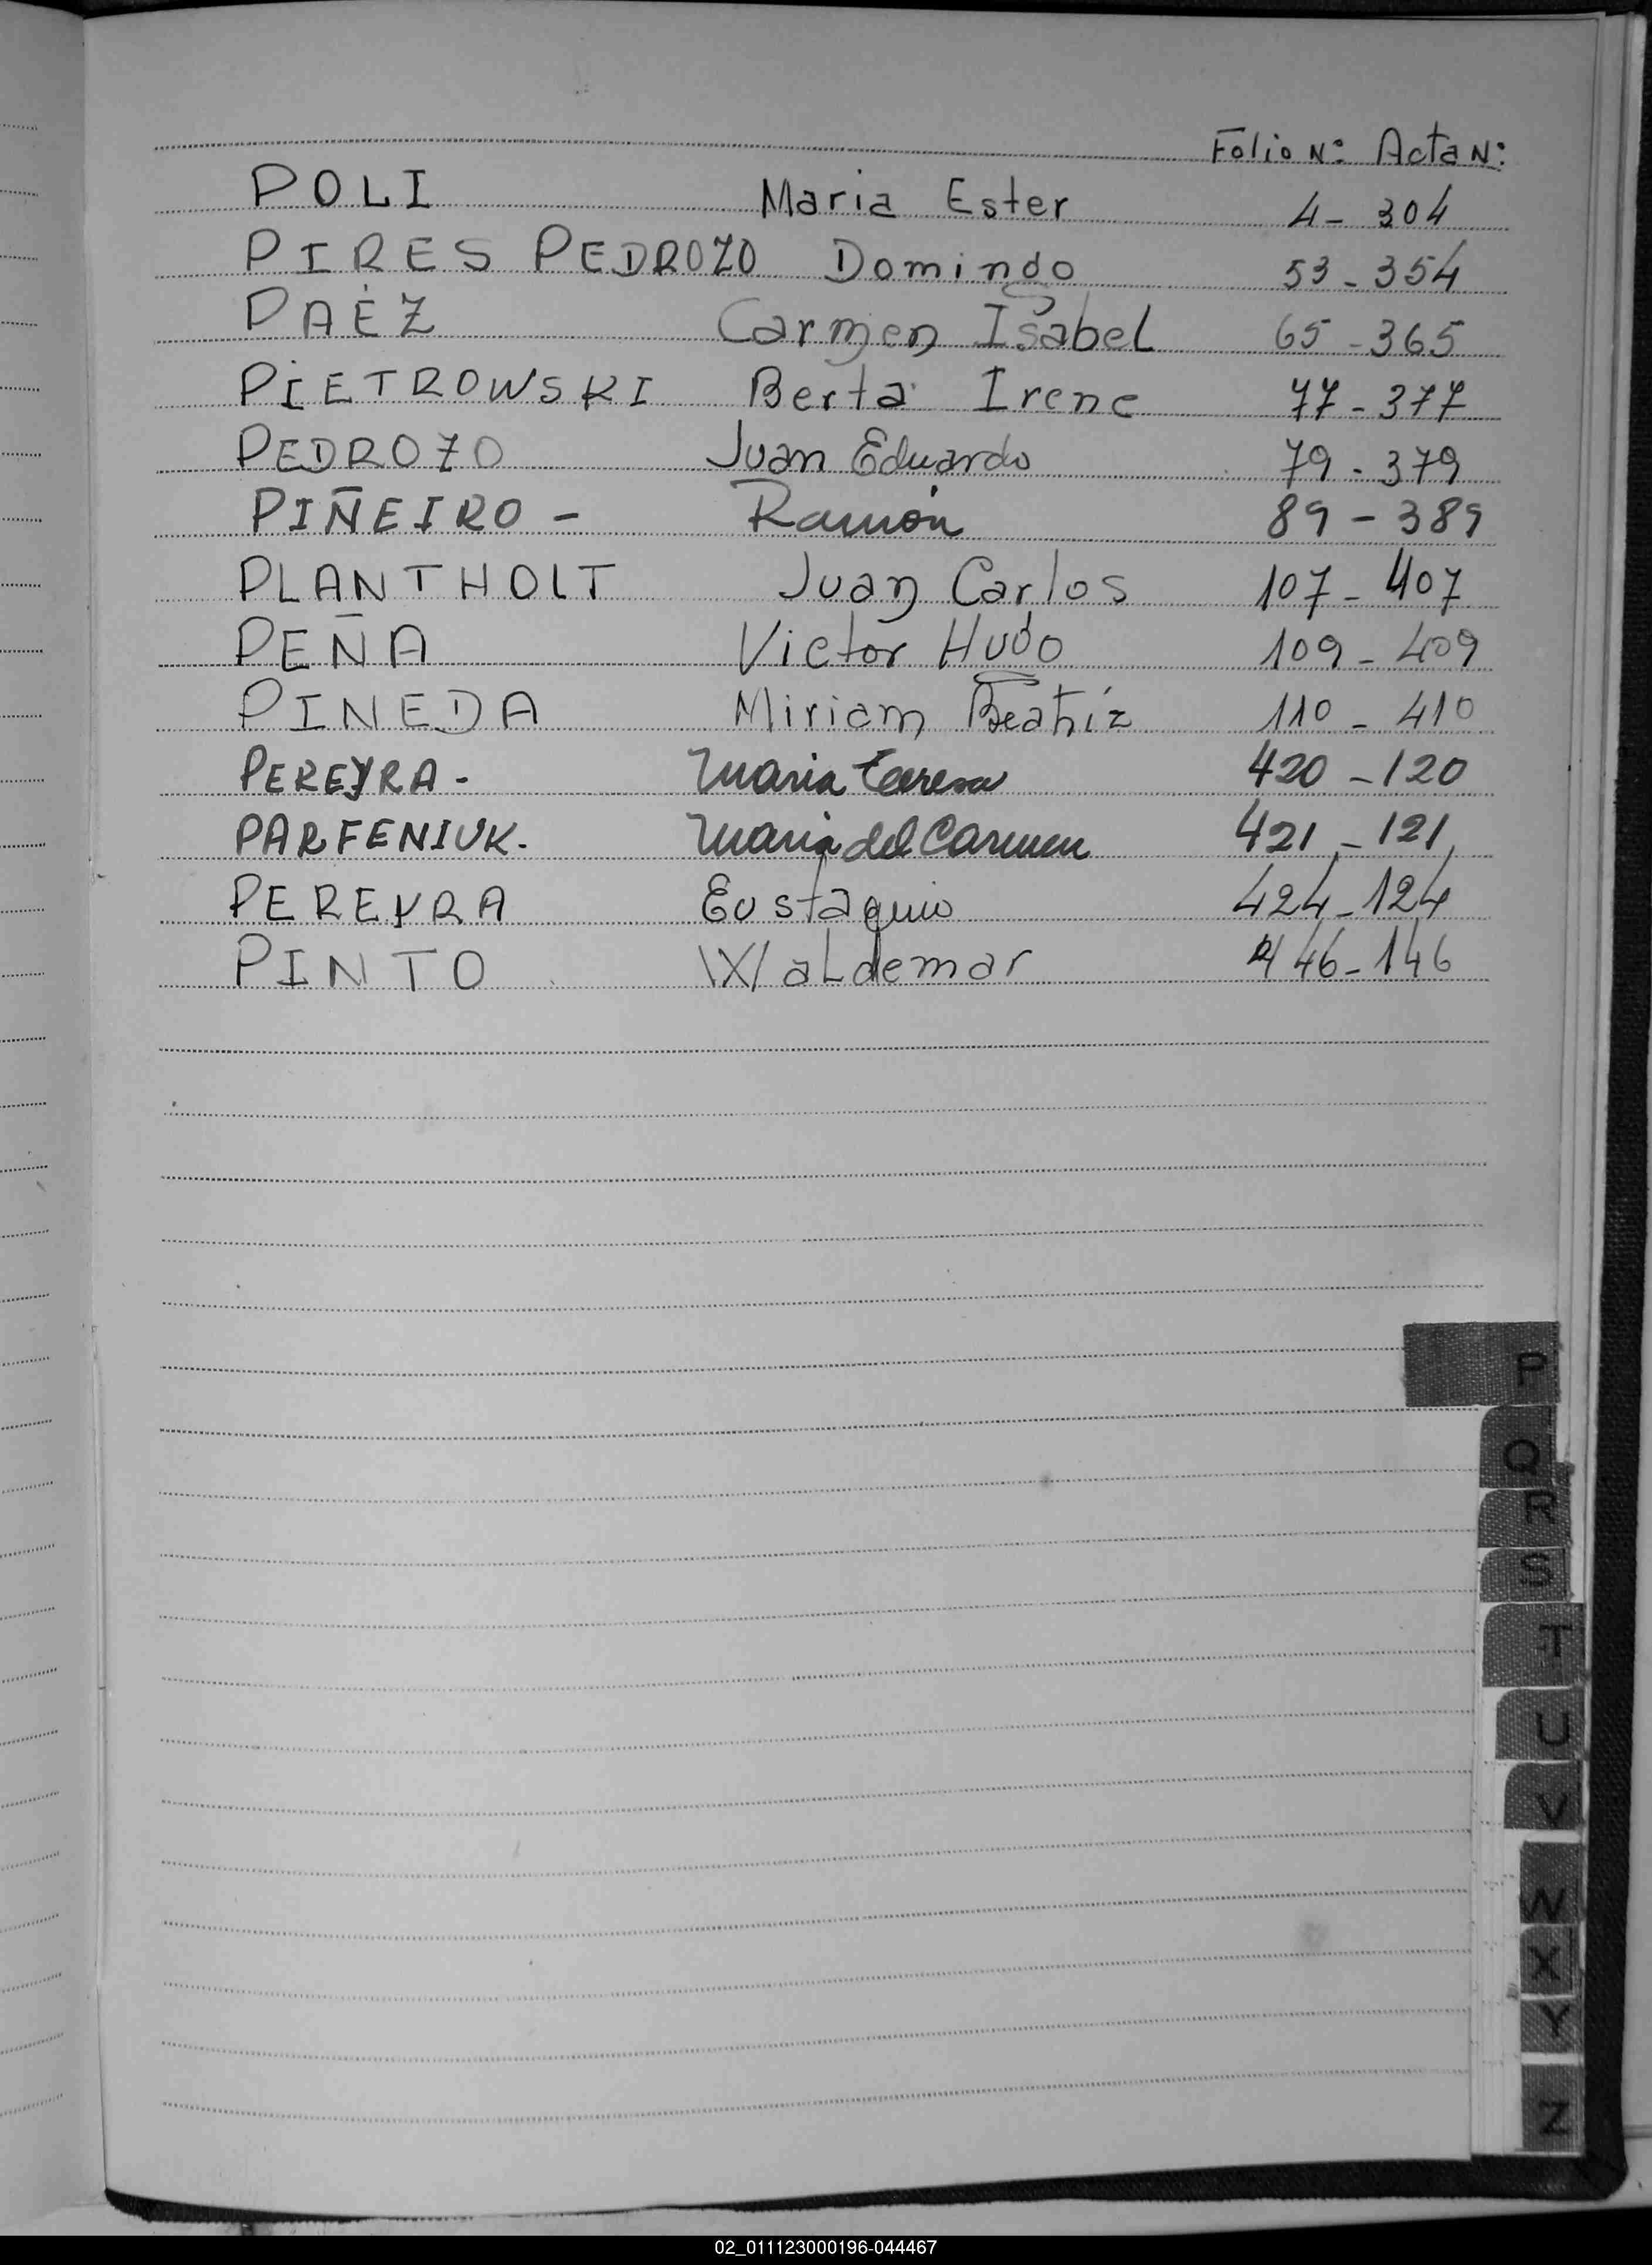 Folio N: Acta N:
POLI Maria Ester 4- 304
PIRES PEDROZO Domingo 53-354
PAÉZ Carmen Isabel 65-365
PIETROWSKI Berta Irene 77-377
PEDROZO Juan Eduardo 79-379
PIÑEIRO - Ramón 89-389
PLANTHOLT Juan Carlos 107-407
PEÑA Victor Hugo 109-409
PINEDA Miriam Beatríz 110-410
PEREYRA- Maria Teresa 420-120
PARFENIUK. Maria del Carmen 421-121
PEREYRA Eustaquio 424-124
PINTO Waldemar 446-146
P
Q
R
S
T
U
V
W
X
Y
Z
02_011123000196-044467